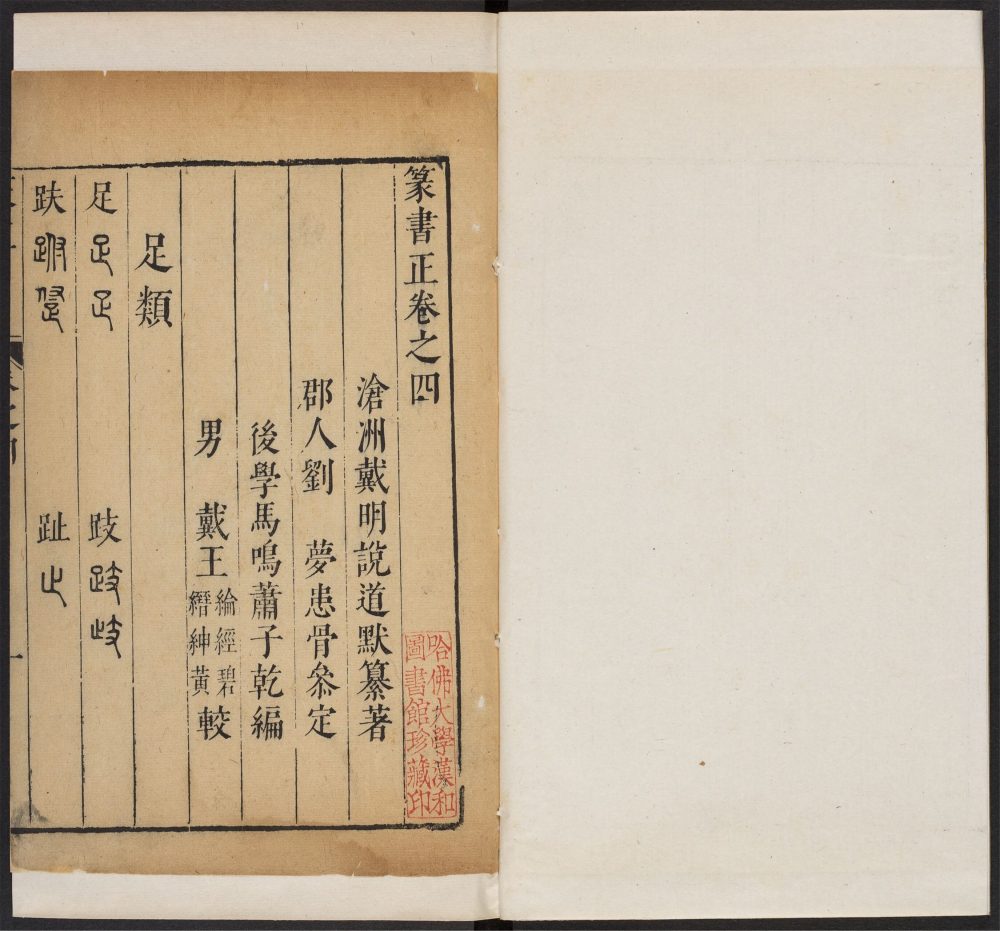 篆書正卷之四
滄洲戴明說道默纂著
郡人劉　夢患骨叅定
後學馬鳴蕭子乾編
男　戴王綸經碧縉紳黃較
足類
足　跂
趺　趾止
哈佛大學漢和圖書館珍藏印